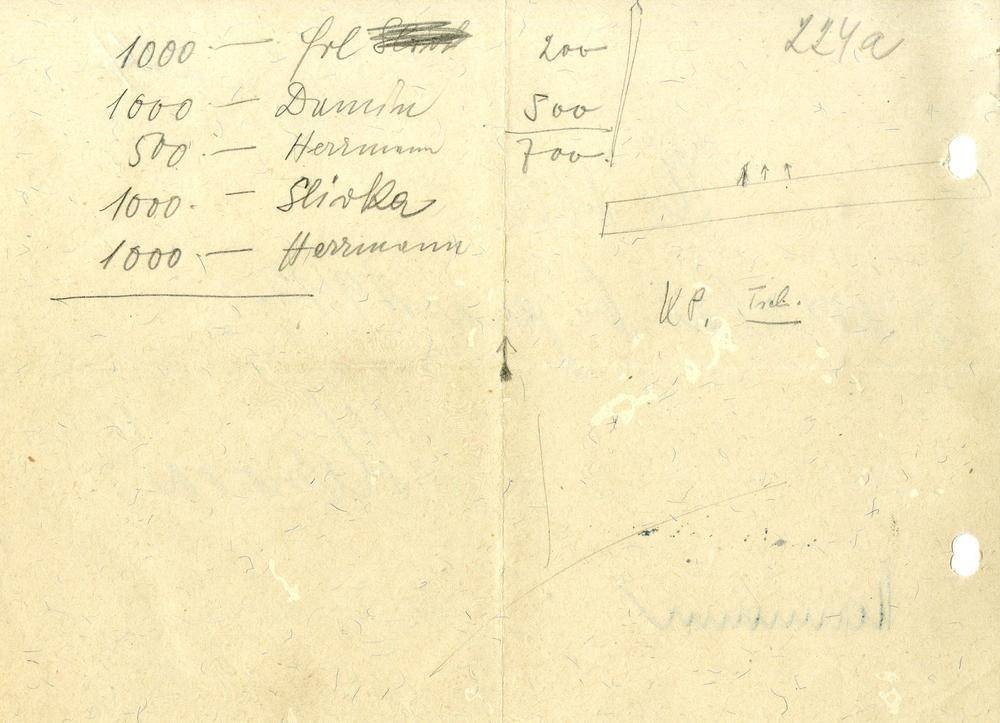 1000 — Frl
1000 — Damin
500 — Herrmann
1000 — Slivka
1000 — Herrmann
200
500
700
224a
KP. Tsch.